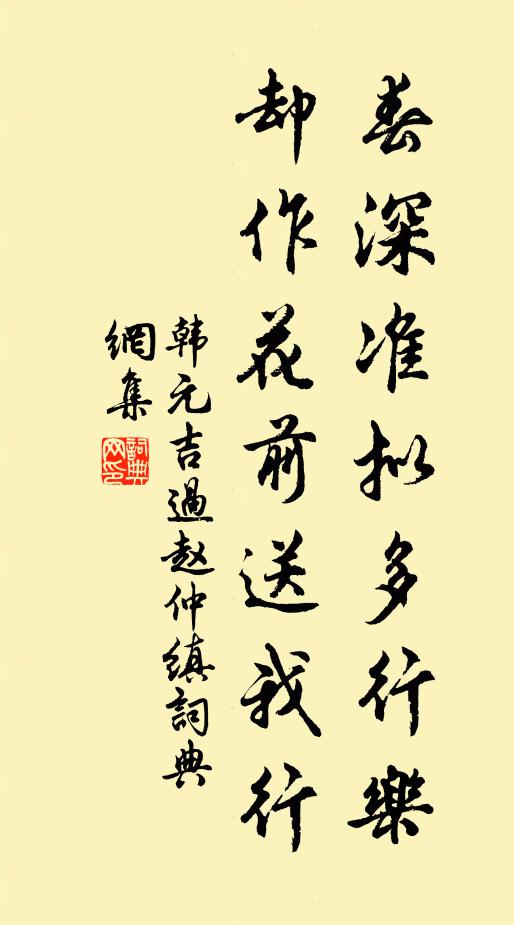 春深准拟多行樂
却作花前送我行
韩元吉過赵仲缜詞典
網集
詞典
网印